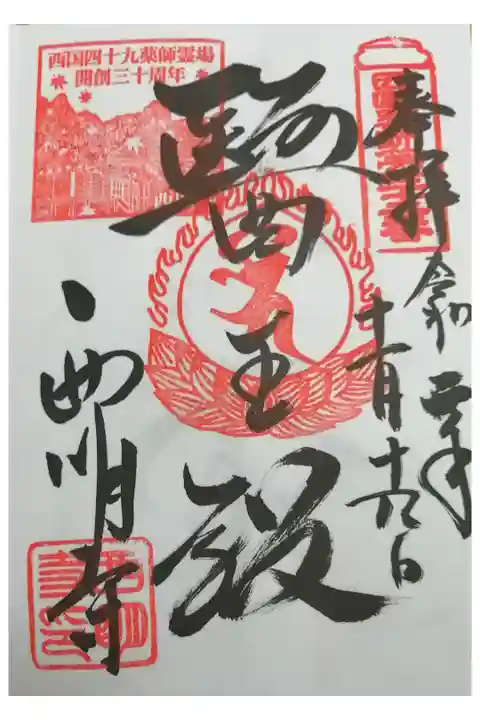 奉拝
令和
十一月十九日
醫王殿
西明寺
西国四十九薬師霊場
開創三十周年